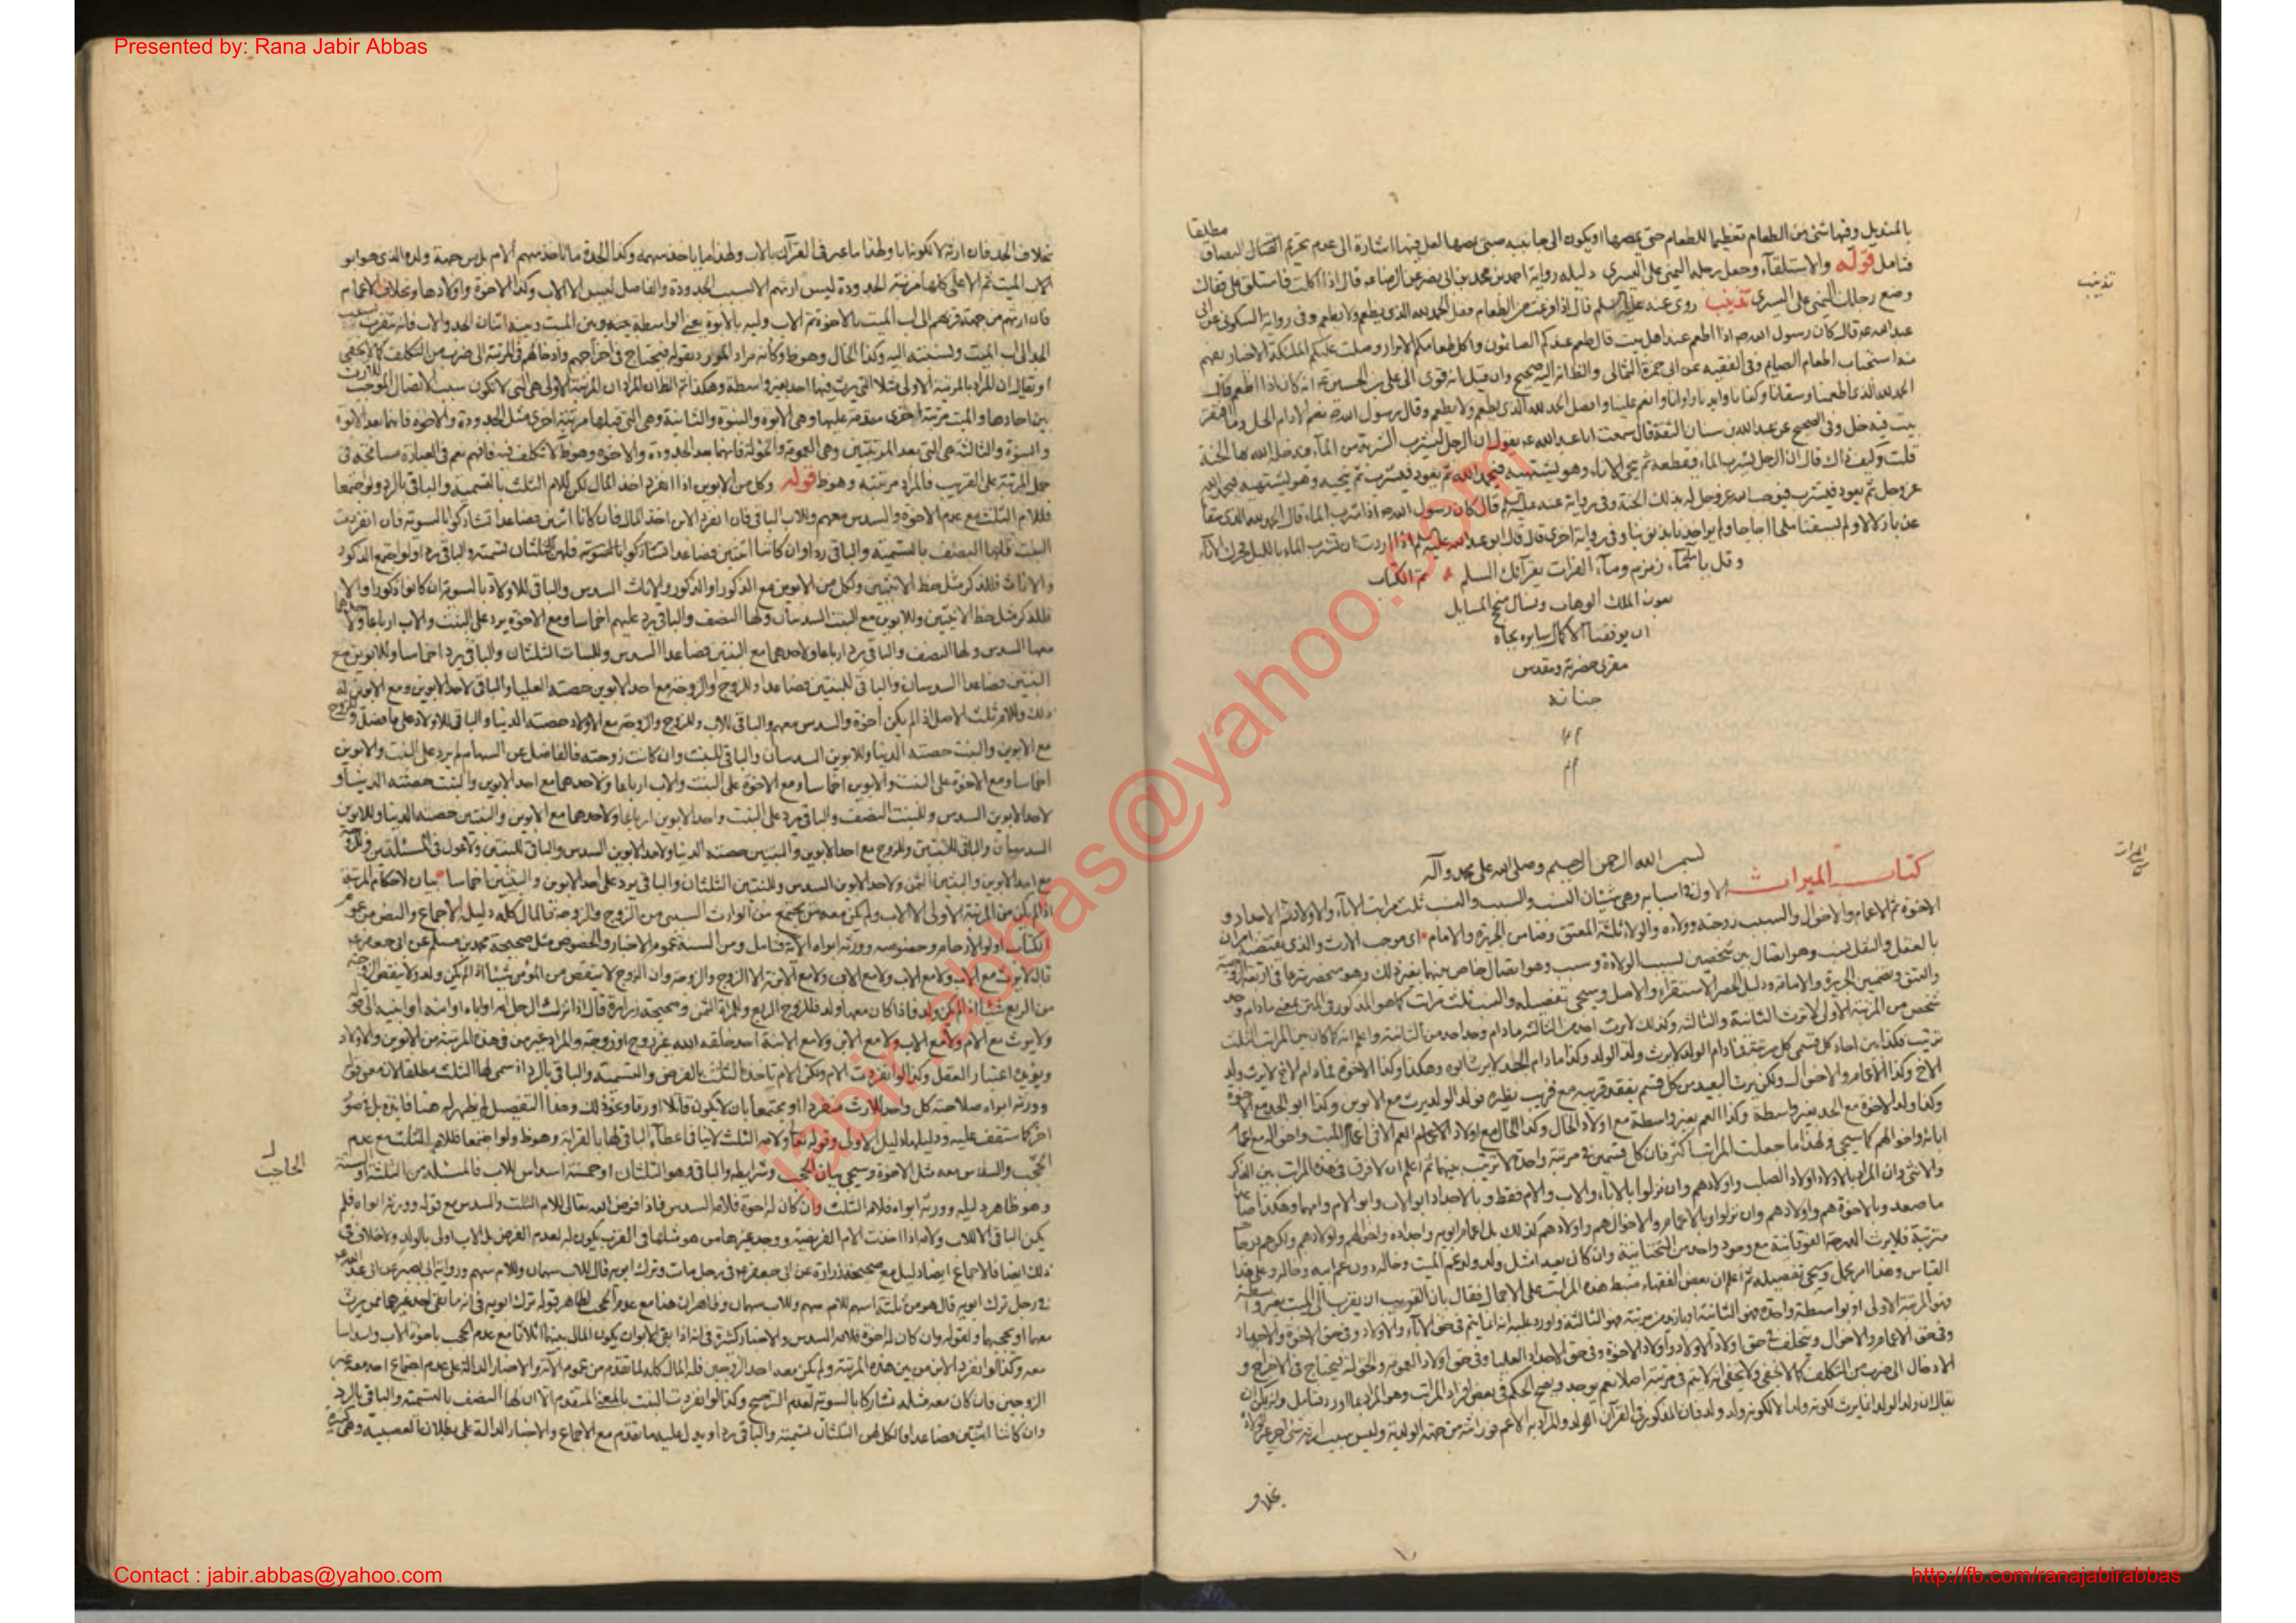 Presented by: Rana Jabir Abbas
بالمنديل وفيها شئ من الطعام تعظيما للطعام حتى يمصها او يكون الى جانبه صبى يمصها لعل فيها اشارة الى عدم تحريم
مطلقا
فتامل قوله والاستلقاء وجعل رجله اليمنى على اليسرى دليله رواية احمد بن محمد بن ابى نصر عن الرضا عه قال اذا اكلت فاستلق على قفاك
تذنيب
وضع رجلك اليمنى على اليسرى تذنيب روى عنه عليه السلم قال اذا فرغت من الطعام فقل الحمد لله الذى يطعم ولا يطعم وفى رواية السكونى عن ابى
عبد الله عه قال كان رسول الله ص اذا اطعم عند اهل بيت قال طعم عندكم الصائمون واكل طعامكم الابرار وصلت عليكم الملئكة الاخيار
استحباب اطعام الصيام وفى الفقيه عن ابى حمزة الثمالى والظ انه اليه صحيح وان قيل انه قوى الى على بن الحسين عه انه كان اذا اطعم قال
الحمد لله الذى اطعمنا وسقانا وكفانا وايدنا واوانا وانعم علينا وافضل الحمد لله الذى يطعم ولا يطعم وقال رسول الله ص نعم الادام الخل وما افقر
بيت فيه خل وفى الصحيح عن عبد الله بن سنان الثقة قال سمعت ابا عبد الله عه يقول ان الرجل ليشرب الشربة من الماء فيدخله الله بها الجنة
قلت وكيف ذاك قال ان الرجل يشرب الماء فيقطعه ثم ينحى الاناء وهو يشتهيه فيحمد الله ثم يعود فيشرب ثم ينحيه وهو يشتهيه فيحمد الله
عز وجل ثم يعود فيشرب فيوجب الله عز وجل له بذلك الجنة وفى رواية عنه عليه السلم قال كان رسول الله ص اذا شرب الماء قال الحمد لله الذى سقانا
عذبا زلالا ولم يسقنا ملحا اجاجا ولم يواخذنا بذنوبنا وفى رواية اخرى قال قال ابو عبد الله عليه السلم اذا اردت ان تشرب الماء بالليل فحرك الاناء
وقل يا ماء زمزم وماء الفرات يقرآئك السلم تم الكتاب
بعون الملك الوهاب ونسال منجح المسايل
ان يوفقنا لاكمال سايره بجاه
مقربى حضرته ومقدس
جنابه
الميراث
بسم الله الرحمن الرحيم وصلى الله على محمد وآله
كتاب الميراث الاول فى اسبابه وهى شيئان النسب والسبب والنسب ثلث مراتب الاباء والاولاد ثم الاجداد و
الاخوة ثم الاعمام والاخوال والسبب زوجته وولاء والولاء ثلثة المعتق وضامن الجريرة والامام اى موجب الارث والذى يقتضيه امران
بالعقل والنقل نسب وهو اتصال بين شخصين لسبب الولادة وسبب وهو اتصال خاص بينهما بغير ذلك وهو منحصر شرعا فى اربعة الزوجية
والعتق وتضمين الجريرة والامامة ودليل الحصر الاستقراء والاصل وسيجئ تفصيله والنسب ثلث مراتب كما هو المذكور فى المتن بمعنى مادام وجد
شخص من المرتبة الاولى لا ترث الثانية والثالثة وكذلك لا يرث احد من الثالثة مادام وجد احد من الثانية واعلم انه كما كان بين المراتب الثلث
ترتيب فكذا بين احاد كل قسمى كل مرتبة فمادام الولد لا يرث ولد الولد وكذا مادام الجد لا يرث ابوه وهكذا وكذا الاخوة فما دام الاخ لا يرث ولد
الاخ وكذا الاعمام والاخوال ولكن يرث البعيد من كل قسم بفقد قريبه مع قريب نظيره فولد الولد يرث مع الابوين وكذا ابو الجد مع الاخوة
وكذا ولد الاخوة مع الجد بغير واسطة وكذا العم بغير واسطة مع اولاد الخال
ابائه واخوالهم كما سيجئ ولهذا ما جعلت المراتب اكثر فان كل قسمين فى مرتبة واحدة لا ترتيب بينهما ثم اعلم ان لا فرق فى هذه المراتب بين الذكر
والانثى وان المراد بالاولاد اولاد الصلب واولادهم وان نزلوا بالاباء والاب والام فقط وبالاجداد ابو الاب وابو الام وامهما وهكذا
ما صعد وبالاخوة هم واولادهم وان نزلوا وبالاعمام والاخوال هم واولادهم كذلك بل اعمام ابويه واجداده واخوالهم واولادهم ولكنهم درجات
مترتبة فلا يرث الدرجة الفوقانية مع وجود واحد من التحتانية وان كان بعيدا مثل ولد ولد عم الميت وخاله دون عم ابيه وخاله وعلى هذا
القياس وهذا امر مجمل وسيجئ تفصيله ثم اعلم ان بعض الفقهاء ضبط هذه المراتب على الاجمال فقال بان القريب ان يقرب الى الميت بغير واسطة
فهو المرتبة الاولى او بواسطة واحدة فهو الثانية او بازيد من مرتبة فهو الثالثة واورد عليه انه انما يتم فى حق الاباء والاولاد وفى حق الاخوة والاجداد
وفى حق الاعمام والاخوال ويتخلف فى حق اولاد الاولاد واولاد الاخوة وفى حق الاجداد العليا وفى حق اولاد العمومة والخؤلة فيحتاج فى الاخراج و
الادخال الى ضرب من التكلف كما لا يخفى ولا يخفى انه لا يتم فى مرتبة اصلا نعم يوجد ويصح الحكم فى بعض افراد المراتب وهو المراد بما اورد فتامل ولا يمكن ان
يقال ان ولد الولد انما يرث لكونه ولدا لا لكونه ولد ولد فان المذكور فى القرآن الولد والمراد به الاعم فوراثته من جهة الولدية وليس سبب ارثه شئ اخر غير الولادة
بخلاف
بخلاف الجد فان ارثه لا لكونه ابا ولهذا ما عبر فى القرآن بالاب ولهذا ما ياخذ سهمه وكذا الجدة ما تاخذ سهم الام بل من جهة ولده الذى هو ابو
الاب الميت ثم الاعلى كلها مرتبة الجدودة ليس ارثهم الا لسبب الجدودة والفاصل ليس الا الاب وكذا الاخوة واولادها وبخلاف الاعمام
فان ارثهم من جهة قربهم الى اب الميت بالاخوة ثم الاب وليه بالابوة يعنى الواسطة بينه وبين الميت
الجد الى اب الميت ولنسبته اليه وكذا الخال وهو ظ وكانه مراد المورد بقوله فيحتاج فى اخراجهم وادخالهم فى المرتبة الى ضرب من التكلف كما لا يخفى
او يقال ان المراد بالمرتبة الاولى مثلا التى يرث فيها احد بغير واسطة وهكذا ثم الظ ان المراد ان المرتبة الاولى هى التى لا تكون سبب الاتصال الموجب للارث
بين احادها والميت مرتبة اخرى مقدمة عليها وهى الابوة والبنوة والثانية وهى التى قبلها مرتبة اخرى مثل الجدودة والاخوة فانها بعد الابوة
والبنوة والثالثة هى التى بعد المرتبتين وهى العمومة والخؤلة فانهما بعد الجدودة والاخوة وهو ظ لا تكلف فيه فافهم نعم فى العبارة مسامحة فى
حمل المرتبة على القريب فالمراد مرتبته وهو ظ قوله وكل من الابوين اذا انفرد اخذ المال لكن للام الثلث بالتسمية والباقى بالرد ولو اجتمعا
فللام الثلث مع عدم الاخوة والسدس معهم وللاب الباقى فان انفرد الابن اخذ المال فان كانا اثنين فصاعدا تشاركوا بالسوية فان انفردت
البنت فلها النصف بالتسمية والباقى ردا وان كانتا اثنتين فصاعدا تشاركوا بالسوية فلهن الثلثان تسمية والباقى ردا ولو اجتمع الذكور
والاناث فللذكر مثل حظ الانثيين ولكل من الابوين مع الذكور او الذكور والاناث السدس والباقى للاولاد بالسوية ان كانوا ذكورا والا
فللذكر مثل حظ الانثيين وللابوين مع البنت السدسان ولها النصف والباقى يرد عليهم اخماسا ومع الاخوة يرد على البنت والاب ارباعا ولاحدهما
معها السدس ولها النصف والباقى يرد ارباعا ولاحدهما مع البنتين فصاعدا السدس وللبنات الثلثان والباقى يرد اخماسا وللابوين مع
البنتين فصاعدا السدسان والباقى للبنتين فصاعدا وللزوج او الزوجة مع احد الابوين حصته العليا والباقى لاحد الابوين ومع الابوين له
ذلك وللام ثلث الاصل اذا لم يكن اخوة والسدس معهم والباقى للاب وللزوج والزوجة مع الاولاد حصته الدنيا والباقى للاولاد على ما فصل وللزوج
مع الابوين والبنت حصته الدنيا وللابوين السدسان والباقى للبنت وان كانت زوجته فالفاضل عن السهام يرد على البنت والابوين
اخماسا ومع الاخوة على البنت والاب ارباعا ولاحدهما مع احد الابوين والبنت حصته الدنيا و
لاحد الابوين السدس وللبنت النصف والباقى يرد على البنت واحد الابوين ارباعا ولاحدهما مع الابوين والبنتين حصته الدنيا وللابوين
السدسان والباقى للبنتين وللزوج مع احد الابوين والبنتين حصته الدنيا ولاحد الابوين السدس والباقى للبنتين ولا عول فى المسئلتين وللزوجة
مع احد الابوين والبنتين الثمن ولاحد الابوين السدس وللبنتين الثلثان والباقى يرد على احد الابوين والبنتين اخماسا بيان لاحكام المرتبة
اذا لم يكن من المرتبة الاولى الا الاب ولم يكن معه من يجتمع من الوارث السببى من الزوج والزوجة فالمال كله دليله الاجماع والنص من عموم
الكتاب اولوا الارحام وخصوصه وورثه ابواه الاية فتامل ومن السنة عموم الاخبار والخصوص مثل صحيحة محمد بن مسلم عن ابى جعفر عه
قال لا يرث مع الام ولا مع الاب ولا مع الابن ولا مع الابنة الا الزوج والزوجة وان الزوج لا ينقص من النصف شيئا اذا لم يكن ولد ولا ينقص الزوجة
من الربع شيئا اذا لم يكن ولد فاذا كان معهما ولد فللزوج الربع وللمراة الثمن وصحيحة زرارة قال اذا ترك الرجل امه او اباه او ابنه او ابنته
ولا يرث مع الام ولا مع الاب ولا مع الابن ولا مع الابنة احد خلقه الله غير زوج او زوجة والمراد غير من فى هذه المرتبة من الابوين والاولاد
ويؤيده اعتبار العقل وكذا لو انفردت الام ولكن الام تاخذ الثلث بالفرض والتسمية والباقى بالرد اذ سمى لها الثلث مطلقا
وورثه ابواه صلاحية كل واحد للارث منفردا او مجتمعا بان لا يكون قاتلا او رقا ونحو ذلك وهذا التفصيل لم يظهر له هنا فايدة
الحاجب
اخر كما ستقف عليه ودليلها دليل الاولى وقوله تعالى ولامه الثلث
الحجب والسدس معه مثل الاخوة وسيجئ بيان الحجب وشرايطه والباقى وهو الثلثان او خمسة اسداس للاب فالمسئلة من الثلثة او الستة
وهو ظاهر دليله وورثه ابواه فلامه الثلث وان كان له اخوة فلامه السدس فاذا فرض الله تعالى للام الثلث والسدس مع قوله وورثه ابواه فلم
يكن الباقى الا للاب ولانه اذا اخذت الام الفريضة ووجد غيرها من هو مثلها فى القرب يكون له لعدم الفرض بل الاب اولى بالولد ولا خلاف فى
ذلك ايضا فالاجماع ايضا دليل مع صحيحة زرارة عن ابى جعفر عه فى رجل مات وترك ابويه قال للاب سهمان وللام سهم ورواية ابى بصير عن ابى عبد الله عه
فى رجل ترك ابويه قال هو من ثلثة اسهم للام سهم وللاب سهمان وظاهر ان هذا مع عدم الحجب لظاهر قوله ترك ابويه
معهما او يحجبها ولقوله وان كان له اخوة فلامه السدس والاخبار كثيرة فى انه اذا بقى الابوان يكون المال بينهما اثلاثا مع عدم الحجب باخوة الاب واسداسا
معه وكذا لو انفرد الابن من بين هذه المرتبة ولم يكن معه احد الزوجين فله المال كله لما تقدم من عموم الاية والاخبار الدالة على عدم اجتماع احد معه غير
الزوجين فان كان معه مثله تشاركا بالسوية لعدم الترجيح وكذا لو انفردت البنت بالمعنى المتقدم الا ان لها النصف بالتسمية والباقى بالرد
وان كانتا اثنتين فصاعدا فالكل لهن الثلثان تسمية والباقى ردا ويدل عليه ما تقدم مع الاجماع والاخبار الدالة على بطلان العصبية وهى كثيرة
jabir.abbas@yahoo.com
Contact : jabir.abbas@yahoo.com
http://fb.com/ranajabirabbas